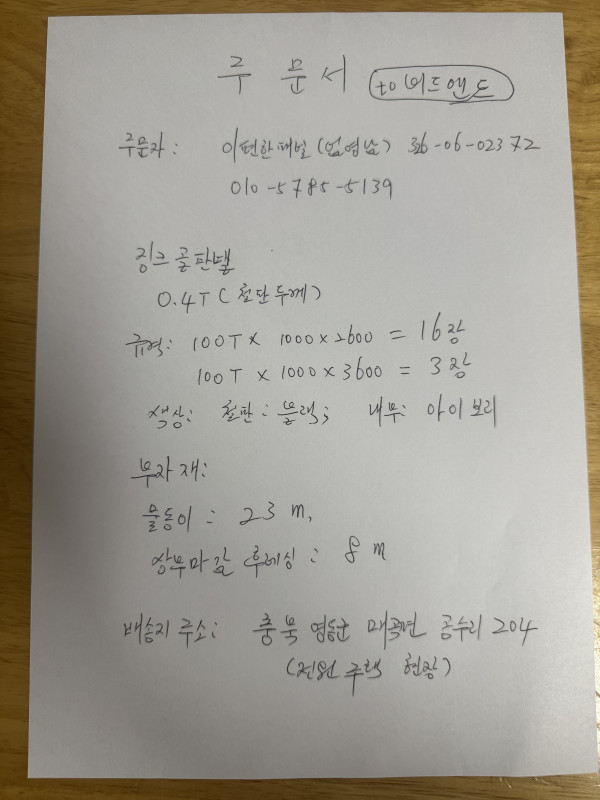 주문서 to 비드앤드
주문자: 이편한패널(엄영남) 326-06-02372
010-5785-5139
징크 골판넬
0.4T (철단두께)
규격: 100T X 1000 x 2600 = 16장
100T x 1000 x 3600 = 3장
색상: 철판: 블랙; 내부: 아이보리
부자재:
물동이: 23 m,
상부마감 후레싱: 8 m
배송지 주소: 충북 영동군 매곡면 공수리 204
(전원 주택 현장)